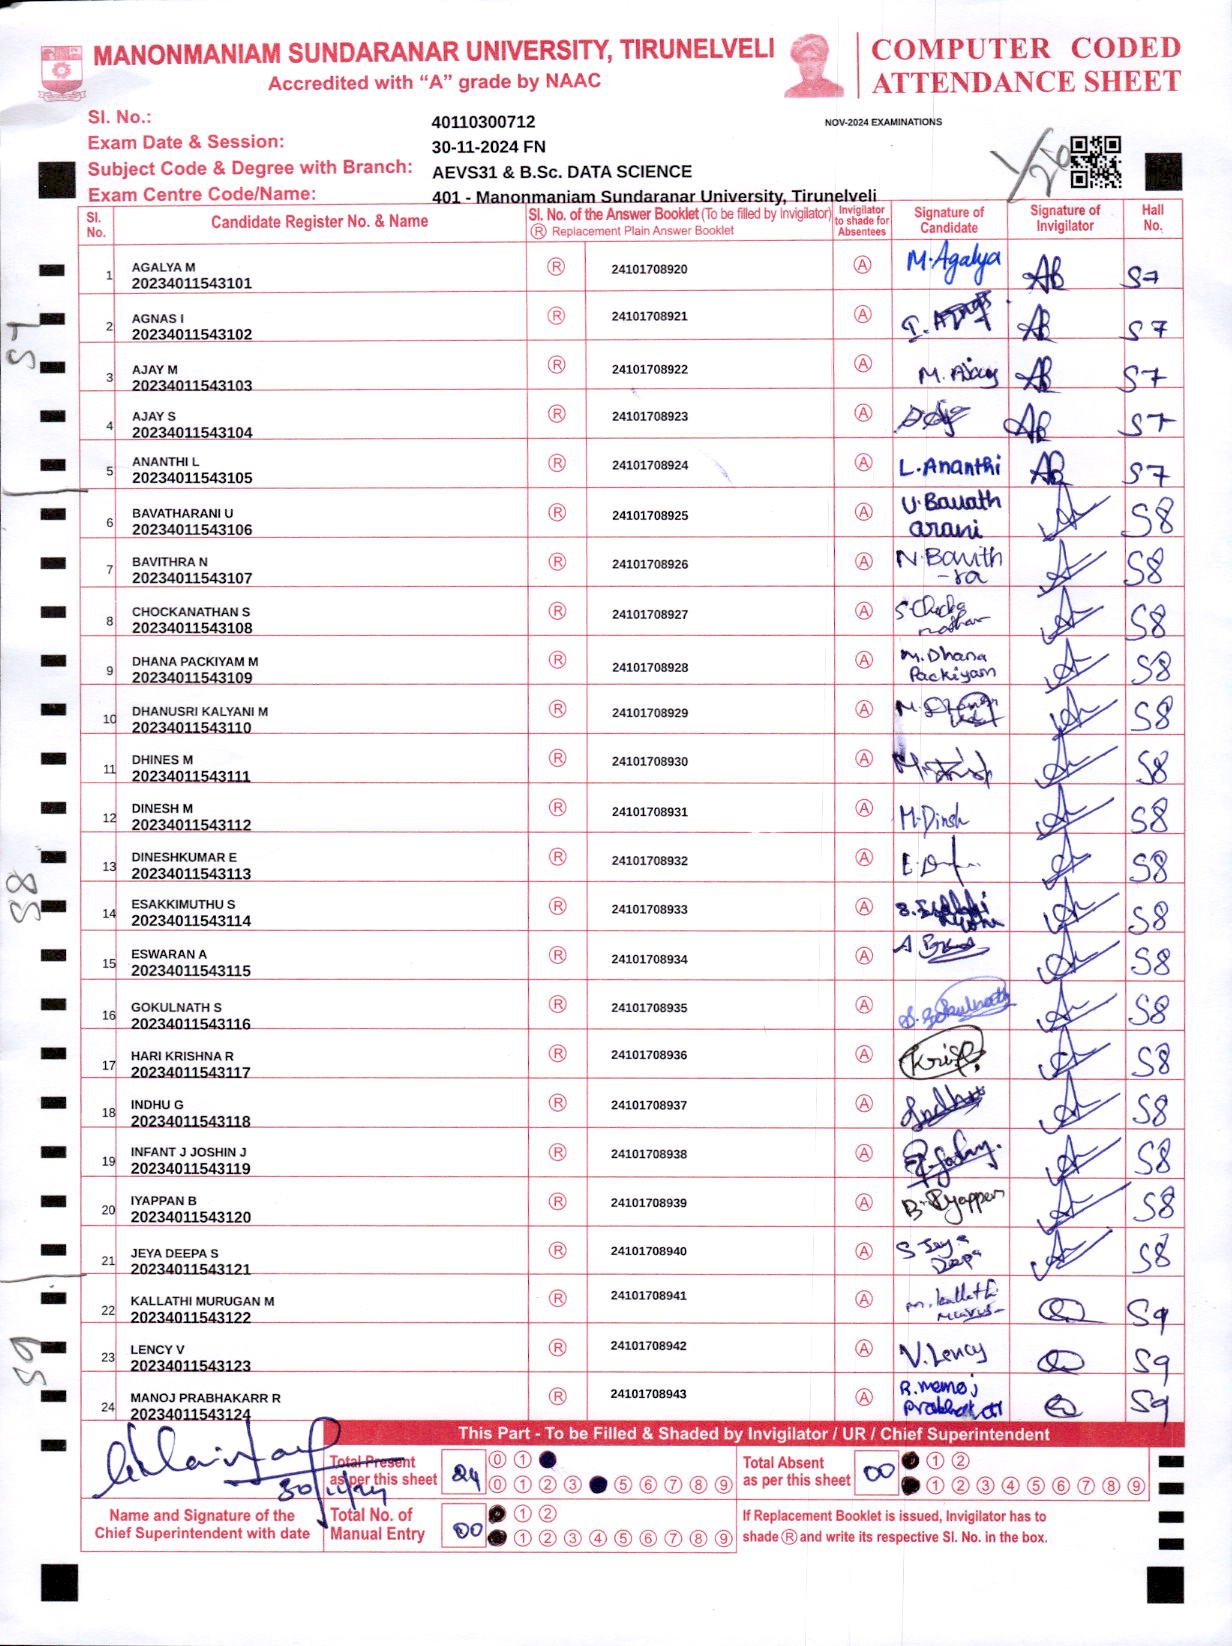 MANONMANIAM SUNDARANAR UNIVERSITY, TIRUNELVELI
Accredited with “A” grade by NAAC
COMPUTER CODED
ATTENDANCE SHEET
Sl. No.: 40110300712
NOV-2024 EXAMINATIONS
Exam Date & Session: 30-11-2024 FN
Subject Code & Degree with Branch: AEVS31 & B.Sc. DATA SCIENCE
Exam Centre Code/Name: 401 - Manonmaniam Sundaranar University, Tirunelveli
Sl. No. Candidate Register No. & Name Sl. No. of the Answer Booklet (To be filled by Invigilator) Ⓡ Replacement Plain Answer Booklet Invigilator to shade for Absentees Signature of Candidate Signature of Invigilator Hall No.
1 AGALYA M 20234011543101 Ⓡ 24101708920 Ⓐ M.Agalya AB S7
2 AGNAS I 20234011543102 Ⓡ 24101708921 Ⓐ AB S7
3 AJAY M 20234011543103 Ⓡ 24101708922 Ⓐ M. Ajay AB S7
4 AJAY S 20234011543104 Ⓡ 24101708923 Ⓐ AB S7
5 ANANTHI L 20234011543105 Ⓡ 24101708924 Ⓐ L.Ananthi AB S7
6 BAVATHARANI U 20234011543106 Ⓡ 24101708925 Ⓐ U.Bavatharani S8
7 BAVITHRA N 20234011543107 Ⓡ 24101708926 Ⓐ N.Bavith-ra S8
8 CHOCKANATHAN S 20234011543108 Ⓡ 24101708927 Ⓐ S8
9 DHANA PACKIYAM M 20234011543109 Ⓡ 24101708928 Ⓐ M.Dhana Packiyam S8
10 DHANUSRI KALYANI M 20234011543110 Ⓡ 24101708929 Ⓐ S8
11 DHINES M 20234011543111 Ⓡ 24101708930 Ⓐ S8
12 DINESH M 20234011543112 Ⓡ 24101708931 Ⓐ M.Dinsh S8
13 DINESHKUMAR E 20234011543113 Ⓡ 24101708932 Ⓐ S8
14 ESAKKIMUTHU S 20234011543114 Ⓡ 24101708933 Ⓐ S8
15 ESWARAN A 20234011543115 Ⓡ 24101708934 Ⓐ S8
16 GOKULNATH S 20234011543116 Ⓡ 24101708935 Ⓐ S.Gokulnath S8
17 HARI KRISHNA R 20234011543117 Ⓡ 24101708936 Ⓐ S8
18 INDHU G 20234011543118 Ⓡ 24101708937 Ⓐ Indhu S8
19 INFANT J JOSHIN J 20234011543119 Ⓡ 24101708938 Ⓐ S8
20 IYAPPAN B 20234011543120 Ⓡ 24101708939 Ⓐ B.Iyappan S8
21 JEYA DEEPA S 20234011543121 Ⓡ 24101708940 Ⓐ S8
22 KALLATHI MURUGAN M 20234011543122 Ⓡ 24101708941 Ⓐ S9
23 LENCY V 20234011543123 Ⓡ 24101708942 Ⓐ V.Lency S9
24 MANOJ PRABHAKARR R 20234011543124 Ⓡ 24101708943 Ⓐ S9
S7
S8
S9
This Part - To be Filled & Shaded by Invigilator / UR / Chief Superintendent
30/11/24
Name and Signature of the
Chief Superintendent with date
Total Present as per this sheet 24 ⓪ ① ⓪ ① ② ③ ⑤ ⑥ ⑦ ⑧ ⑨
Total Absent as per this sheet 00 ① ② ① ② ③ ④ ⑤ ⑥ ⑦ ⑧ ⑨
Total No. of Manual Entry 00 ① ② ① ② ③ ④ ⑤ ⑥ ⑦ ⑧ ⑨
If Replacement Booklet is issued, Invigilator has to
shade Ⓡ and write its respective Sl. No. in the box.